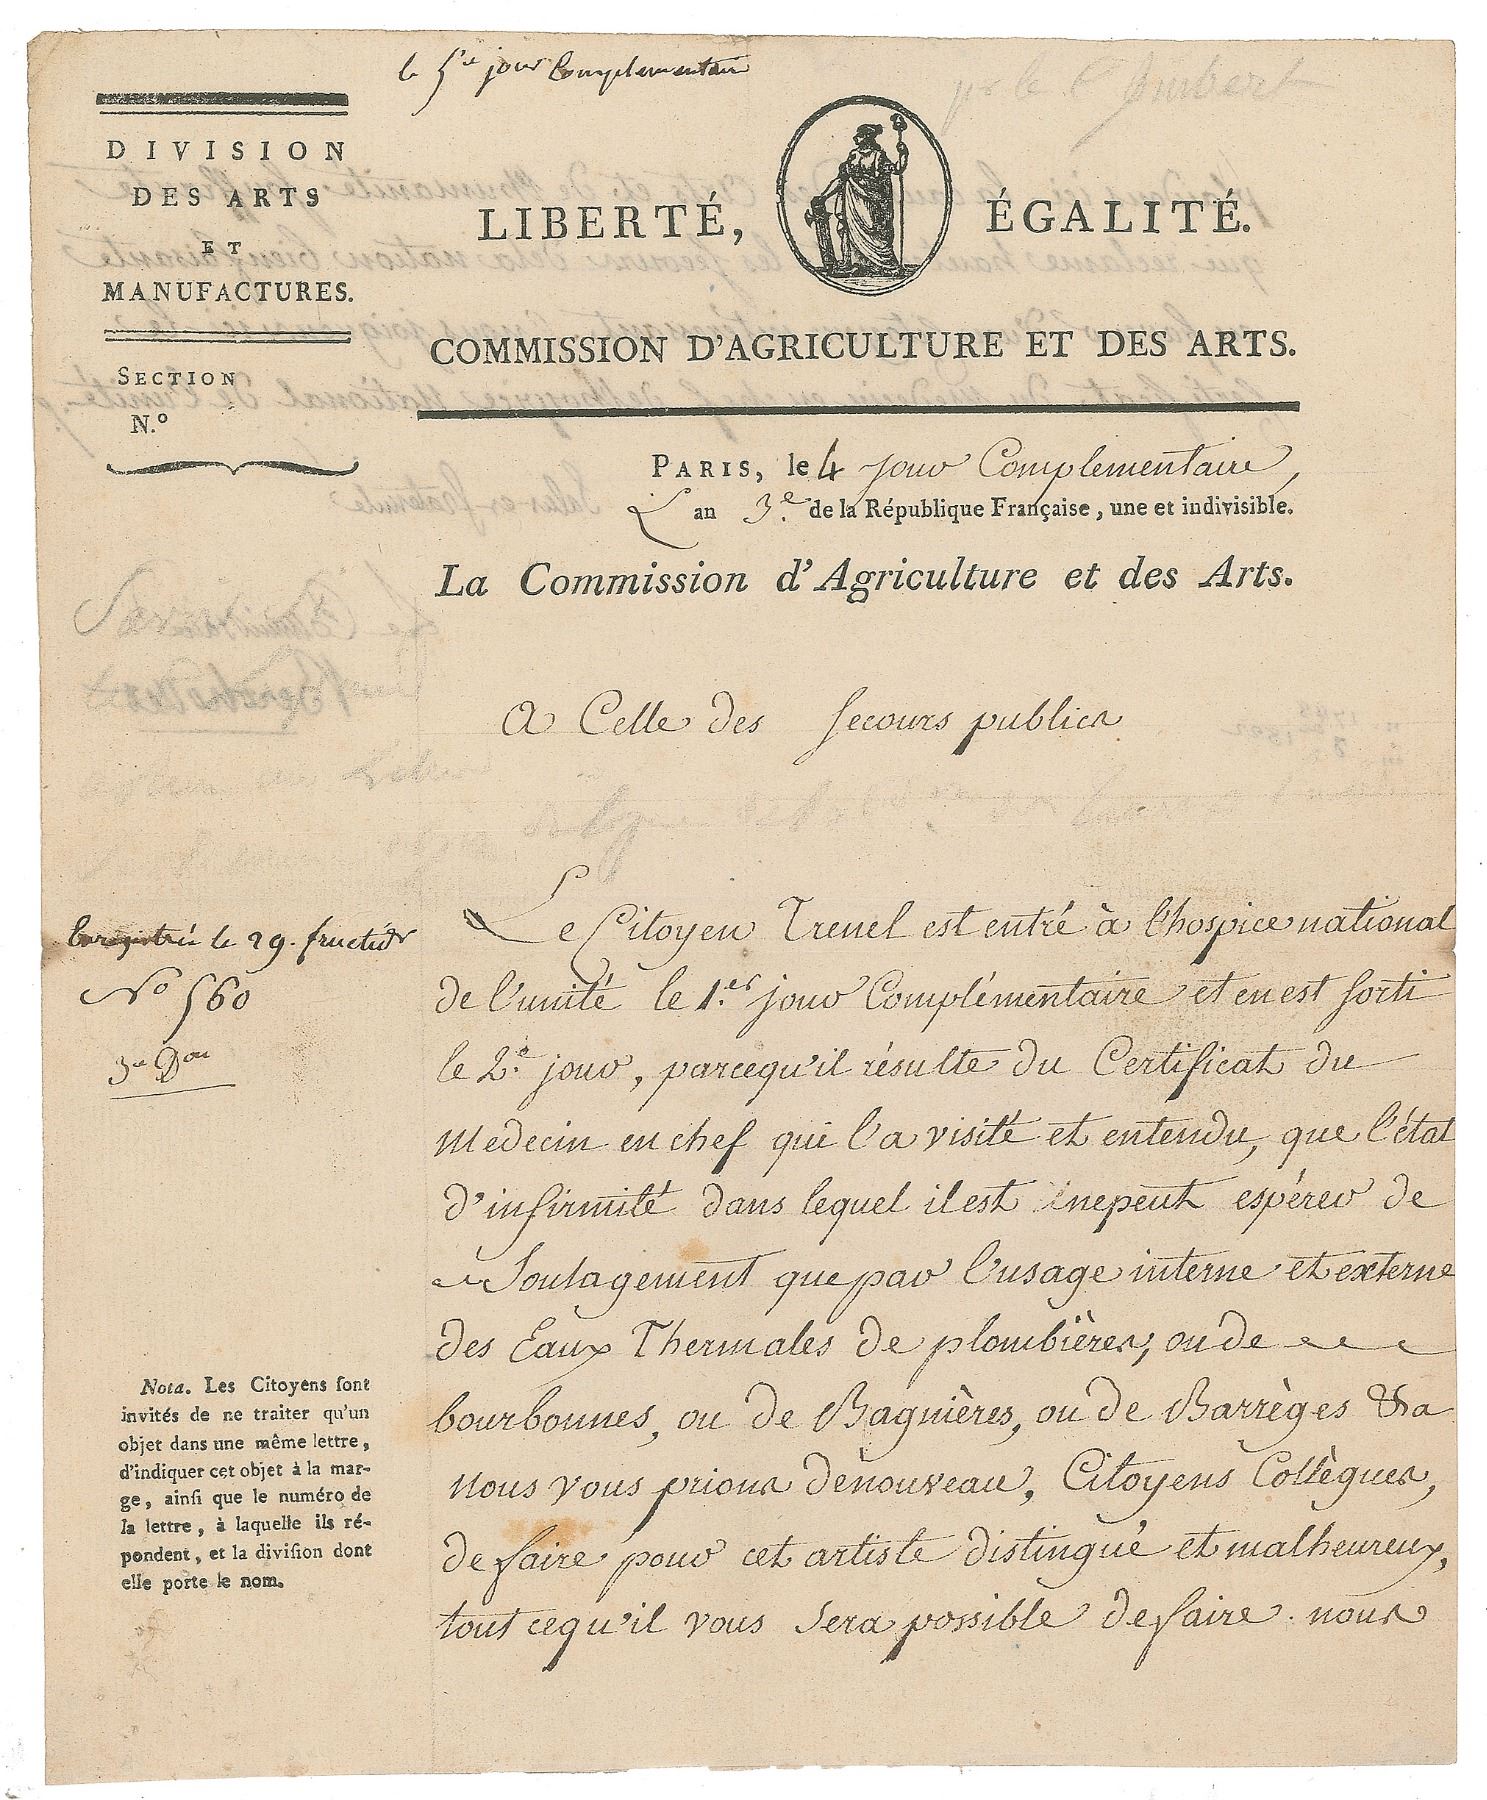 le 5.e jour Complementaire
DIVISION
DES ARTS
ET
MANUFACTURES.
SECTION
N.º
LIBERTÉ, ÉGALITÉ.
COMMISSION D'AGRICULTURE ET DES ARTS.
PARIS, le 4 jour Complementaire,
L'an 3.e de la République Française, une et indivisible.
La Commission d'Agriculture et des Arts.
A Celle des secours publics
Enregistrée le 29. fructidor
No 560
3e Don
Le Citoyen Trenel est entré à l'hospice national
de l'unité le 1.er jour Complémentaire et en est sorti
le 2.e jour, parcequ'il résulte du Certificat du
Medecin en chef qui l'a visité et entendu, que l'état
d'infirmité dans lequel il est ne peut espérer de
Soulagement que par l'usage interne et externe
des Eaux Thermales de plombières, ou de
bourbonnes, ou de Bagnières, ou de Barrèges &a
nous vous prions dénouveau, Citoyens Collègues,
de faire pour cet artiste distingué et malheureux,
tout cequ'il vous sera possible de faire. nous
Nota. Les Citoyens sont
invités de ne traiter qu'un
objet dans une même lettre,
d'indiquer cet objet à la mar-
ge, ainsi que le numéro de
la lettre, à laquelle ils ré-
pondent, et la division dont
elle porte le nom.